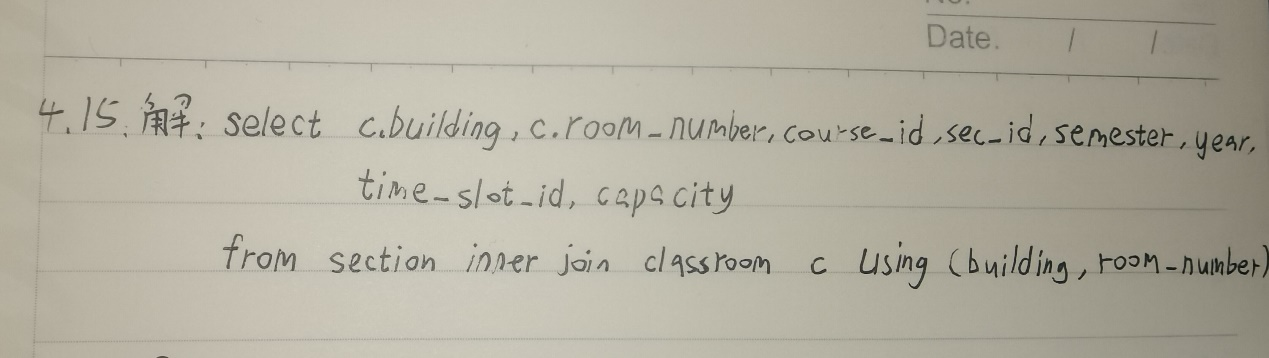 Date. / /
4.15. 解: select c.building, c.room_number, course_id, sec_id, semester, year,
time_slot_id, capacity
from section inner join classroom c using (building, room_number)